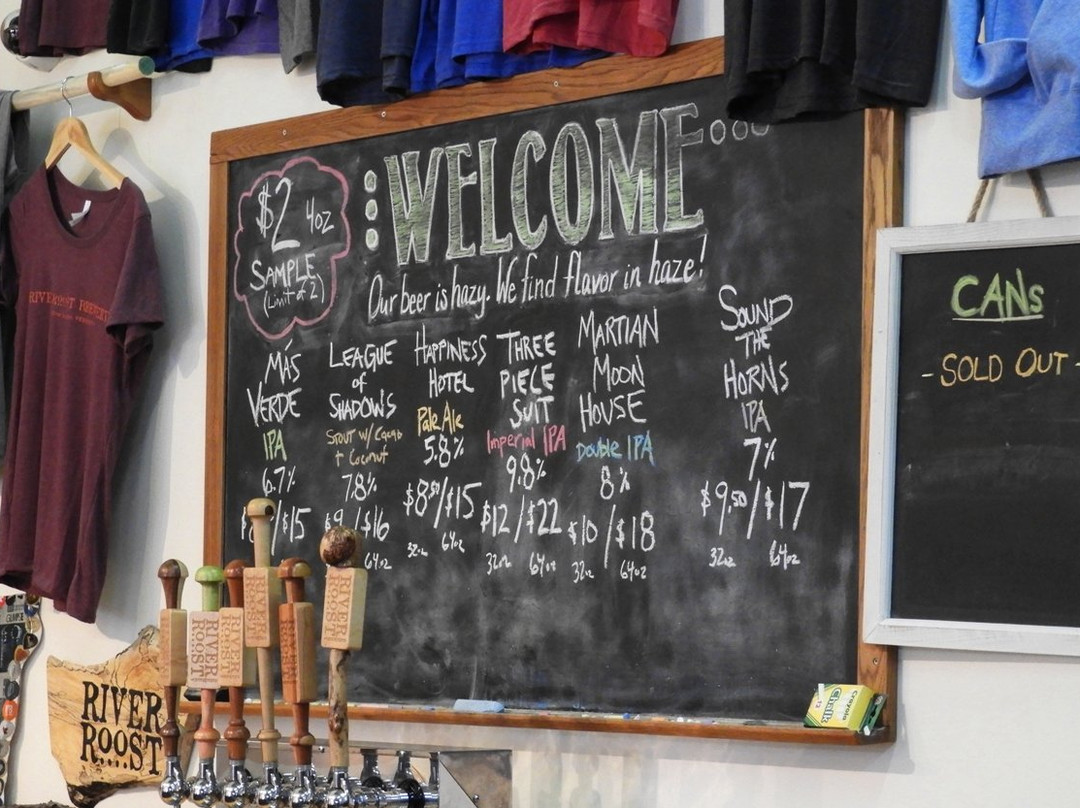 $2 4oz
SAMPLE
(Limit of 2)
WELCOME...
Our beer is hazy. We find flavor in haze!
MÁS
VERDE
IPA
6.7%
/$15
LEAGUE
of
SHADOWS
STOUT w/ Cacao
+ Coconut
7.8%
/$16
64oz
HAPPINESS
HOTEL
Pale Ale
5.8%
$8.50/$15
32oz 64oz
THREE
PIECE
SUIT
Imperial IPA
9.8%
$12/$22
32oz 64oz
MARTIAN
MOON
HOUSE
Double IPA
8%
$10/$18
32oz 64oz
SOUND
THE
HORNS
IPA
7%
$9.50/$17
32oz 64oz
CANs
- SOLD OUT -
RIVER ROOST
RIVER
ROOST
RIVER
ROOST
RIVER
ROOST
RIVER
ROOST
RIVER
ROOST
Crayola
Chalk